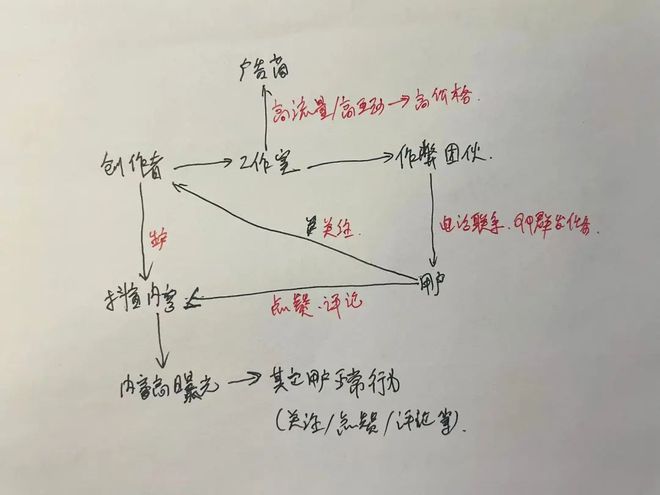 广告商
高流量/高互动→高价格.
创作者 → 工作室 → 作弊团伙.
生产
关注
电话联系、QQ群发任务
抖音内容
点赞、评论
用户
内容高曝光 → 其它用户正常行为
(关注/点赞/评论等).